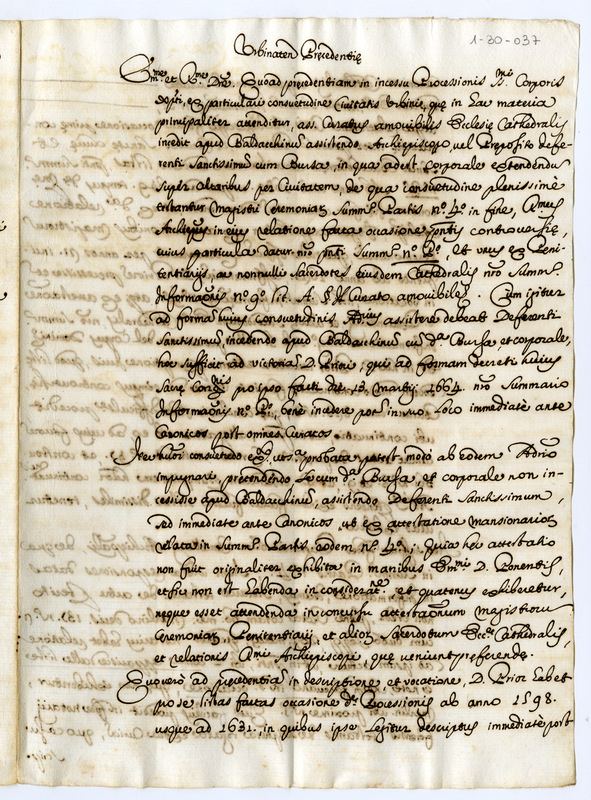 1-30-037
Urbinaten Precedentię
Emme et Rme Dne. Quoad precedentiam in incessu Processionis SSmi Corporis
Xpti, ex particulari consuetudine Civitatis Urbini, quę in hac materia
principaliter attenditur, ass. Curatus amovibilis Ecclesię Cathedralis
incedit apud Baldacchinum assistendo Archiepiscopo, vel Preposito defe-
renti Sanctissimum cum Bursa, in qua adest corporale extendendum
super Altaribus per Civitatem, de qua consuetudine plenissimè
testantur Magistri Ceremoniar. Summ. Partis nº. 4º. in fine, Rmus
Archiepus in eius relatione facta occasione pontis controversię,
cuius particula datur nro pnti Summ. nº. Pº., et unus ex Peni-
tentiarijs, ac nonnulli Sacerdotes eiusdem Cathedralis nro Summ.
Informaonis nº. 9º. lit. A. Curato amovibile. Cum igitur
ad forma huius consuetudinis assistere debeat Deferenti
Sanctissimum, incedendo apud Baldacchinum cum da Bursa et corporale,
hoc sufficit ad victoria D. Prioris, qui ad formam decreti huius
Sacre Congnis pro ipso facti die 13. Martij 1664. nro Summario
Informaonis nº. Pº., benè incedere pot. in suo loco immediatè ante
Canonicos post omnes Curatos.
Nec huiusmodi consuetudo probata potest modo ab eodem Adrio
impugnari, pretendendo secum da Bursa, et corporale non in-
cessisse apud Baldacchinum, assistendo Deferenti Sanctissimum,
sed immediate ante Canonicos, ut ex attestatione mansionarior.
relata in Summ. Partis eodem nº. 4º.; Quia hęc attestatio
non fuit originaliter exhibita in manibus Emi D. Ponentis,
et sic non est habenda in consideratne. et quatenus exhiberetur,
neque esset attendenda in concursu attestaonum Magistror.
Ceremoniar. Penitentiarij, et alior. Sacerdotum Ecc. Cathedralis,
et relationis Rmi Archiepiscopi, quę veniunt preferendę.
Quo verò ad precedentia in descriptione, et vocatione, D. Prior habet
pro se listas factas occasione de Processionis ab anno 1598.
usque ad 1631., in quibus ipse legitur descriptus immediatè post